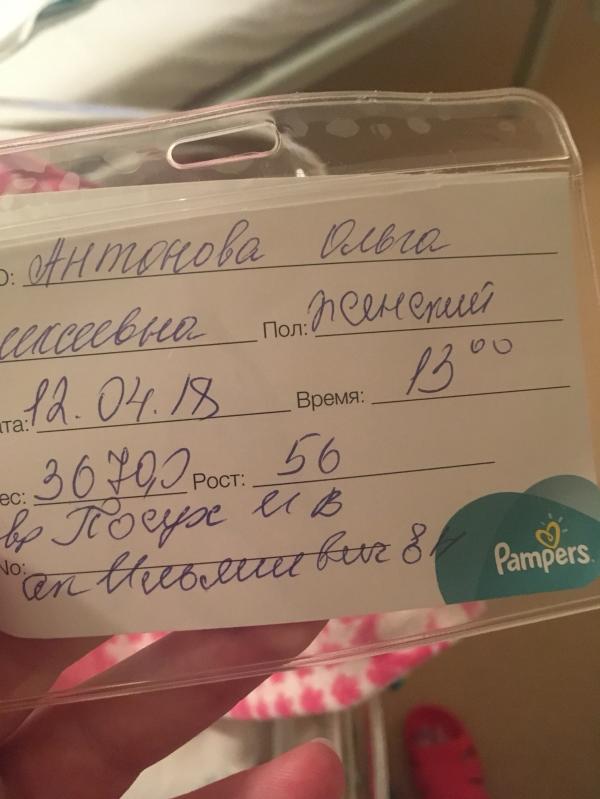 О: Антонова Ольга
лексеевна Пол: женский
ата: 12.04.18 Время: 13⁰⁰
ес: 3670,0 Рост: 56
вр Посух И В
No: ак 8н
Pampers